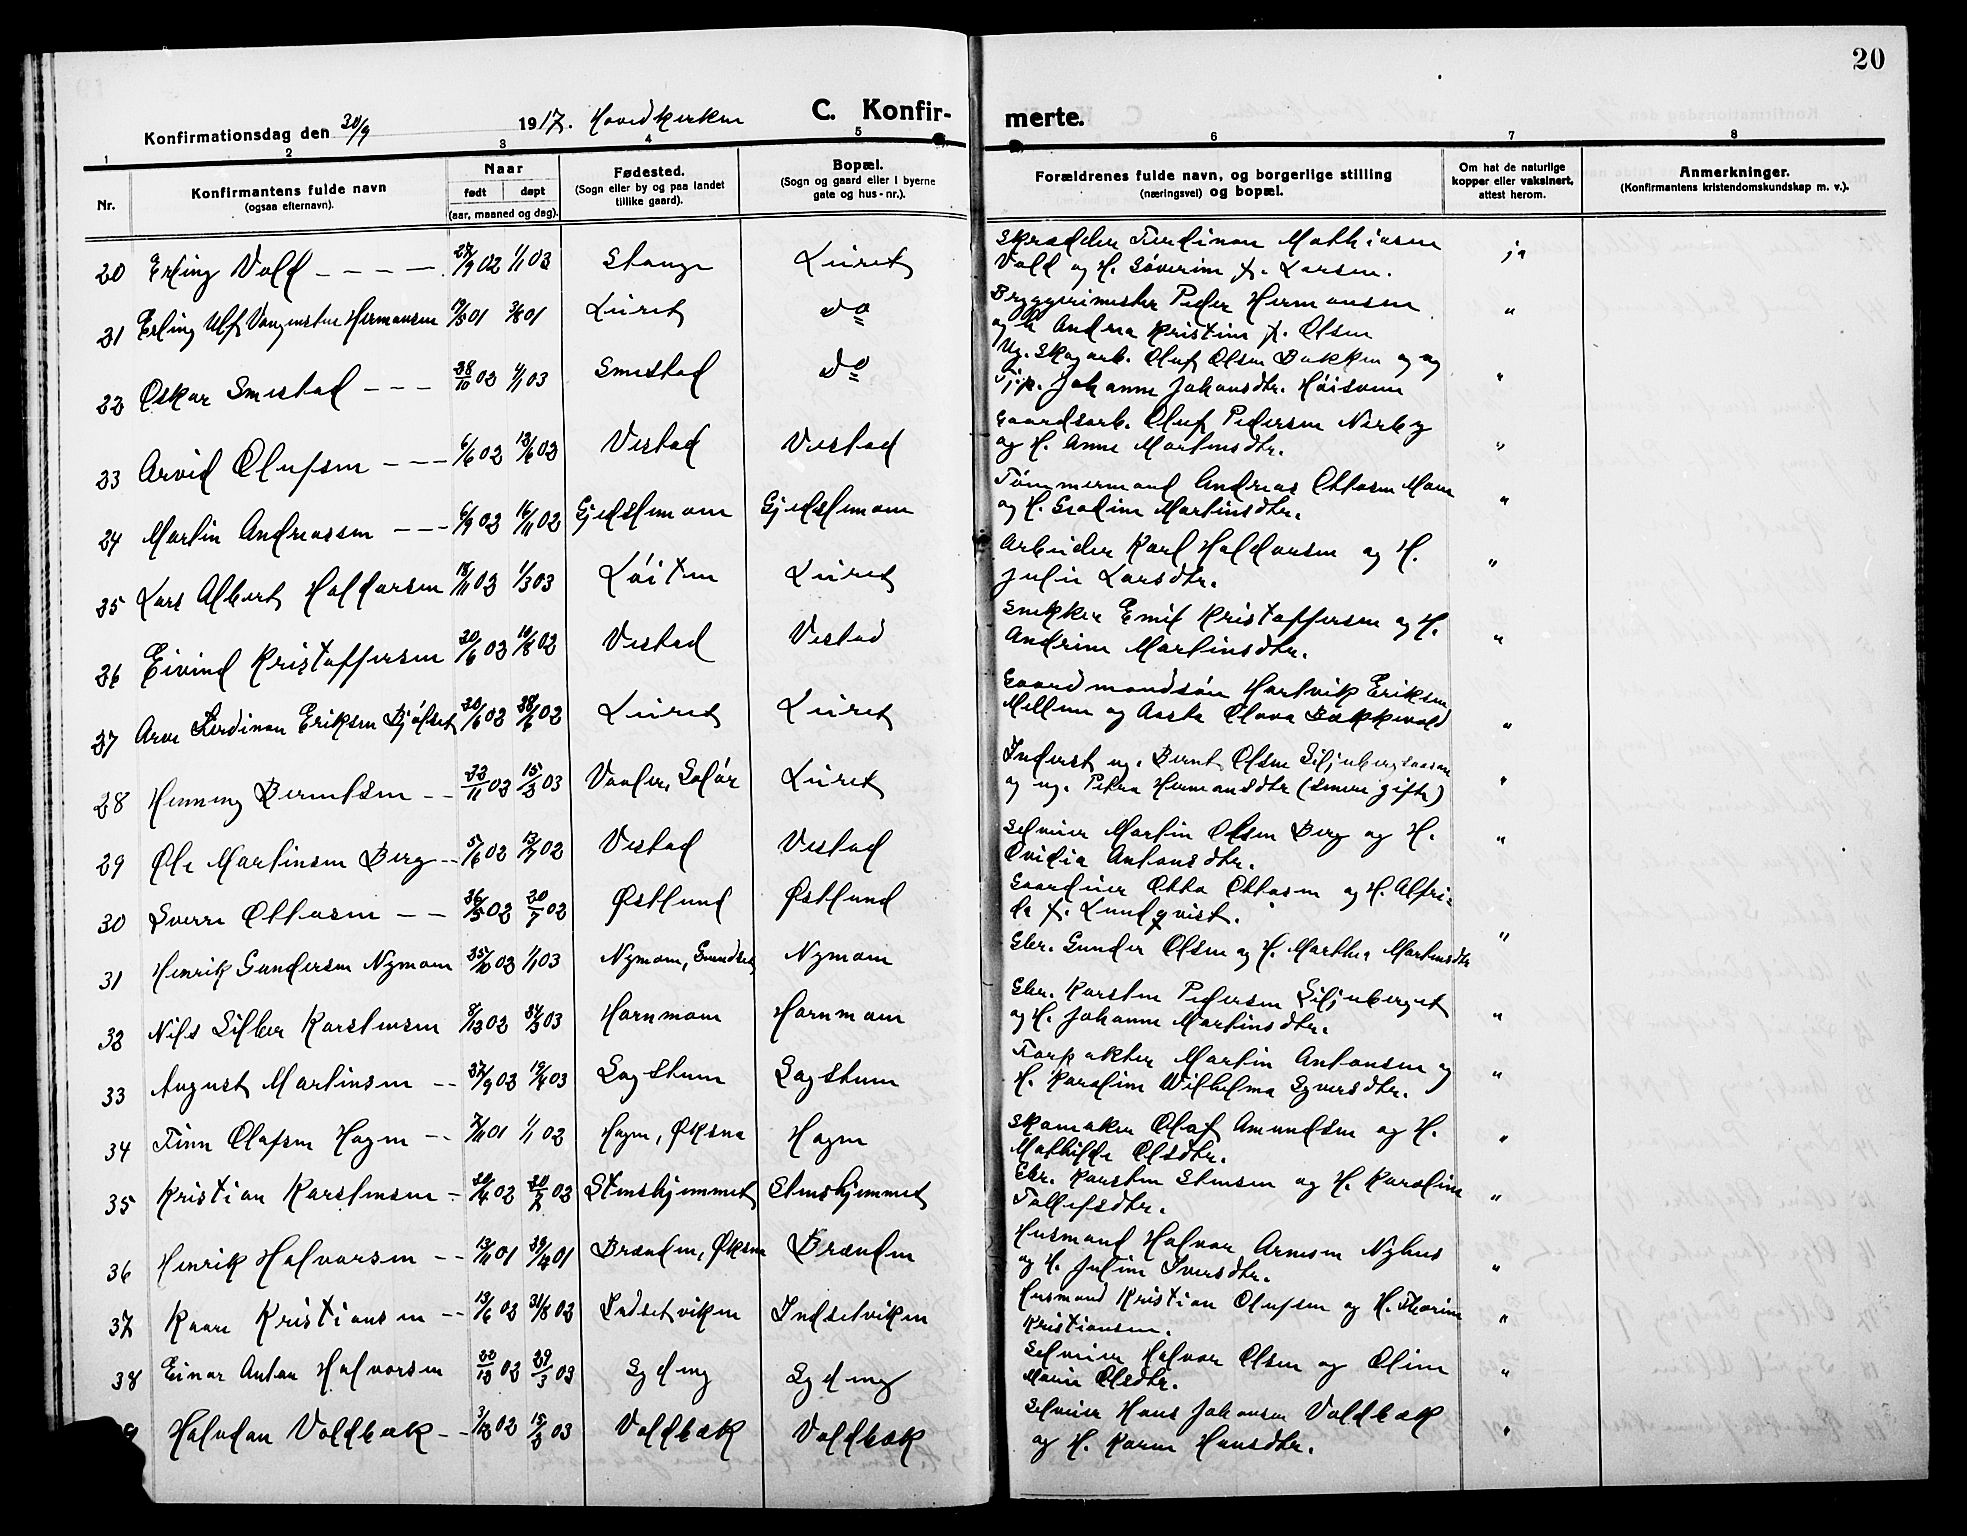 20
Konfirmationsdag den 30/9 1917. Hovedkirken C. Konfir-
merte.
1 2 3 4 5 6 7 8
Nr.
Konfirmantens fulde navn
(ogsaa efternavn).
Naar
født døpt
(aar, maaned og dag).
Fødested.
(Sogn eller by og paa landet
tillike gaard).
Bopæl.
(Sogn og gaard eller i byerne
gate og hus-nr.).
Forældrenes fulde navn, og borgerlige stilling
(næringsvei) og bopæl.
Om hat de naturlige
kopper eller vaksinert,
attest herom.
Anmerkninger.
(Konfirmantens kristendomskundskap m. v.).
20 Erling Vold 27/9 02 1/1 03 Stange Leiret Skrædder Ferdinan Mathiasen ja
Vold og H. Søverine f. Larsen.
21 Erling Ulf Vangensten Hermansen 19/5 01 3/8 01 Leiret do Bryggerimester Peder Hermansen "
og H. Andrea Kristine f. Olsen
22 Oskar Smestad 28/10 02 1/1 03 Smestad do Ug. Skogarb. Oluf Olsen Bakken og ug "
Tj.p. Johanne Johansdtr. Høisveen
23 Arvid Olufsen 6/6 02 13/6 02 Vestad Vestad Gaardsarb. Oluf Pedersen Nørby "
og H. Anne Martinsdtr.
24 Martin Andreassen 6/9 02 16/11 02 Gjedslemoen Gjedslemoen Tømmermand Andreas Ottosen Moen "
og H. Martinsdtr.
25 Lars Albert Haldorsen 18/11 02 1/3 03 Løiten Leiret Arbeider Karl Haldorsen og H. "
Julie Larsdtr.
26 Eivind Kristoffersen 20/6 02 10/8 02 Vestad Vestad Snekker Emil Kristoffersen og H. "
Andrine Martinsdtr.
27 Arve Ferdinan Eriksen 20/6 02 28/6 02 Leiret Leiret Gaardmandsøn Hartvik Eriksen "
Mellem og Aasta Olava Bækkevold
28 Henning Berntsen 22/11 02 15/3 03 Vaaler, Solør Leiret Inderst ug. Bernt Olsen "
og ug. Petra Hermansdtr (senere gifte)
29 Ole Martinsen Berg 5/6 02 13/7 02 Vestad Vestad Selveier Martin Olsen Berg og H. "
Ovidia Antonsdtr.
30 Sverre Ottosen 26/5 02 20/7 02 Østlund Østlund Gaardeier Otto Ottosen og H. Alfri-
da f. Lundqvist. "
31 Henrik Gundersen Nymoen 25/10 02 1/1 03 Nymoen, Grundset Nymoen Gbr. Gunder Olsen og H. Marthea Martinsdtr
32 Nils Silber Karstensen 8/12 02 Hornmoen Hornmoen Gbr. Karsten Pedersen Siljuberget "
og H. Johanne Martinsdtr.
33 August Martinsen 27/9 02 19/4 03 Sagstuen Sagstuen Forpakter Martin Antonsen og "
H. Karoline Wilhelma Syversdtr.
34 Finn Olafsen Hagen 7/11 01 1/1 02 Hagen, Øksna Hagen Skomaker Olaf Amundsen og H. "
Mathilde Olsdtr.
35 Kristian Karstensen 20/4 02 20/7 02 Stenshjemmet Stenshjemmet Gbr. Karsten Stensen og H. Karoline "
Tollefsdtr.
36 Henrik Halvorsen Brænden, Øksna Brænden Husmand Halvor Arnesen Nyhus "
og H. Juline Iversdtr.
37 Kaare Kristiansen 13/6 02 31/8 02 Indsetviken Indsetviken Husmand Kristian Olufsen og H. Thorine "
Kristiansen.
38 Einar Anton Halvorsen 22/12 02 29/3 03 Lyding Lyding Selveier Halvor Olsen og Oline "
Marie Olsdtr.
9 Halvdan Voldbæk 3/12 02 15/3 03 Voldbæk Voldbæk Selveier Hans Johansen Voldbæk "
og H. Karen Hansdtr.